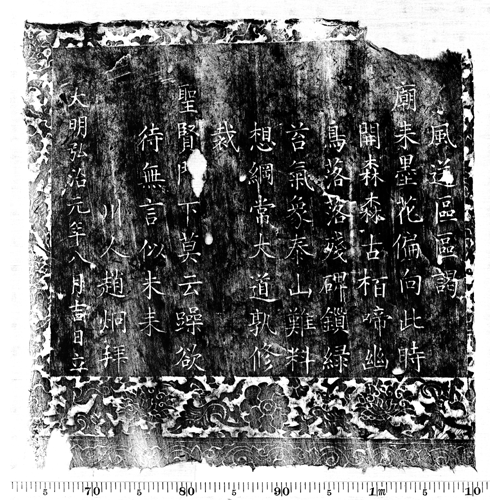 風道區區謁
廟來墨花偏向此時
開森森古栢啼幽
鳥落落殘碑鎖綠
苔氣象泰山難料
想綱常大道孰修
裁
聖賢門下莫云躁欲
待無言似未未
川人趙炯拜
大明弘治元年八月吉日立
5 70 5 80 5 90 5 1m 5 10